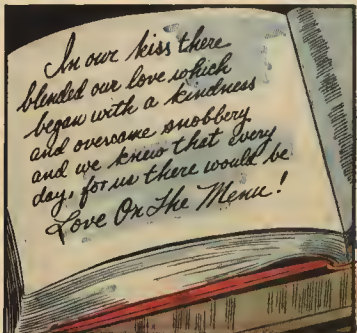 In our kiss there
blended our love which
began with a kindness
and overcame snobbery
and we knew that every
day, for us there would be
Love On The Menu!